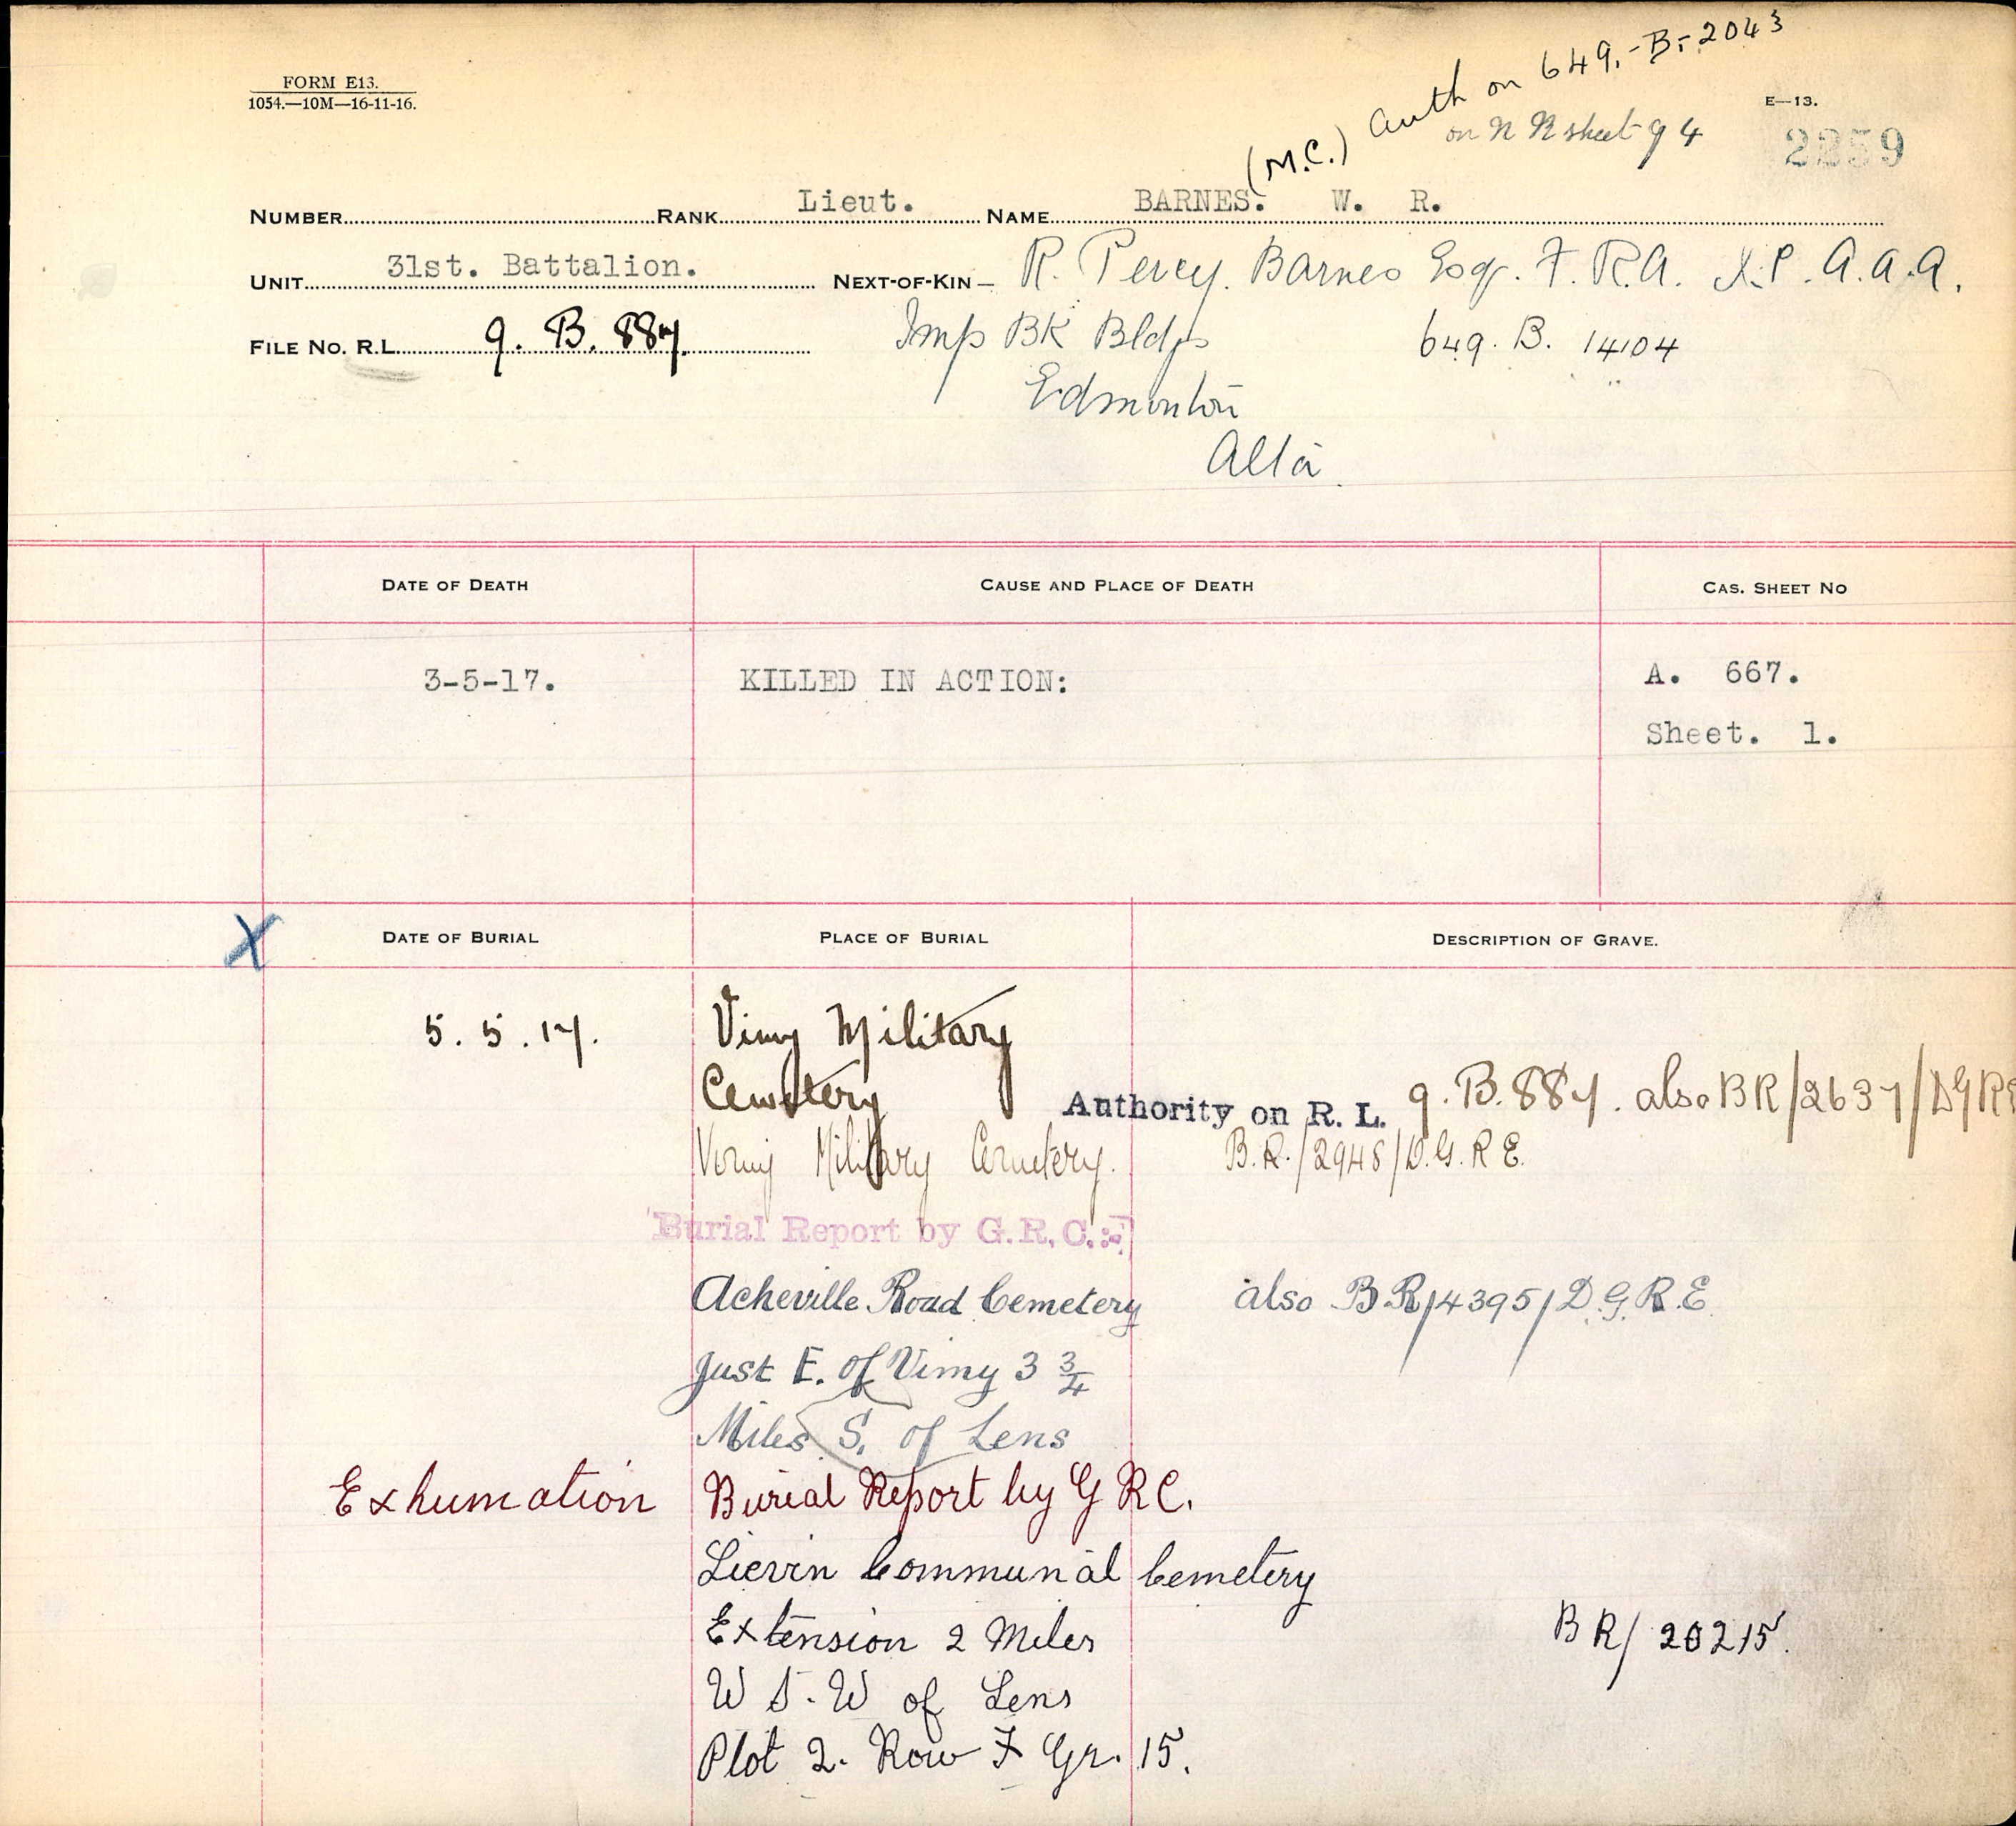 FORM E13.
1054.—10M—16-11-16.
(M.C.) Auth on 649.-B.-2043
on N R sheet 94
E—13.
2259
NUMBER RANK Lieut. NAME BARNES. W. R.
UNIT 31st. Battalion. NEXT-OF-KIN – R. Percy. Barnes Esq. F. R.A. A.A.A.
FILE NO. R.L. 9. B. 887. Imp BK Bldgs 649. B. 14104
Edmonton
Alta
DATE OF DEATH CAUSE AND PLACE OF DEATH CAS. SHEET NO
3-5-17. KILLED IN ACTION: A. 667.
Sheet. 1.
X DATE OF BURIAL PLACE OF BURIAL DESCRIPTION OF GRAVE.
5. 5. 17. Vimy Military
Cemetery Authority on R. L. 9. B. 887. also BR/2637/DGRE
Military Cemetery. B.R./2948/D.G.R E.
Burial Report by G.R.C.:-
Acheville Road Cemetery also B.R/4395/D.G.R.E
Just E. of Vimy 3 3/4
Miles S. of Lens
Exhumation Burial Report by G R C.
Lievin Communal Cemetery
Extension 2 Miles BR/ 20215.
W S. W of Lens
Plot 2. Row F Gr. 15.